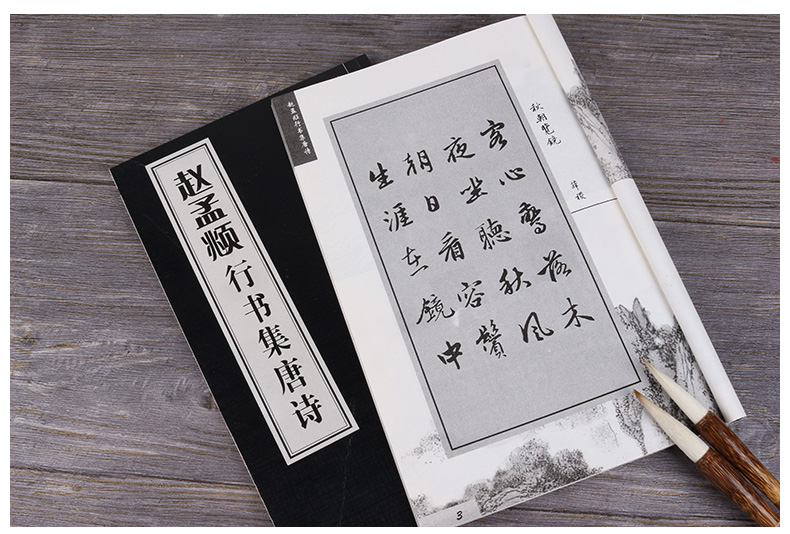 赵孟頫行书集唐诗
赵孟頫行书集唐诗
秋朝覽鏡
薛稷
客心驚落木
夜坐聽秋風
朝日看容鬢
生涯在鏡中
3